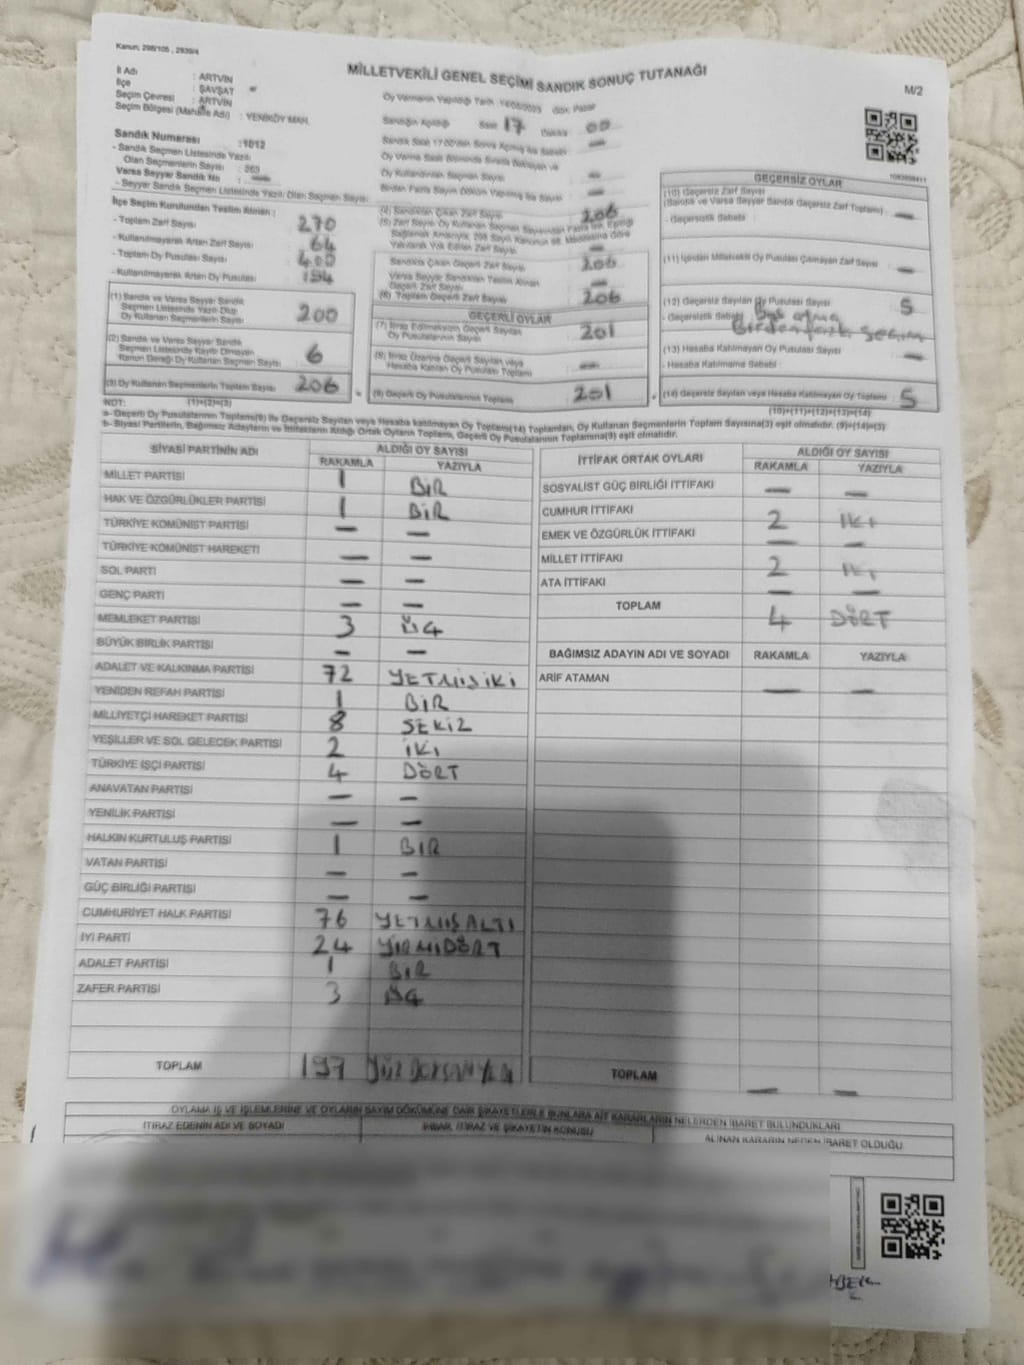 Kanun; 298/105 , 2839/4
MİLLETVEKİLİ GENEL SEÇİMİ SANDIK SONUÇ TUTANAĞI
M/2
İl Adı : ARTVİN
İlçe : ŞAVŞAT
Seçim Çevresi : ARTVİN
Seçim Bölgesi (Mahalle Adı) : YENİKÖY MAH.
Oy Vermenin Yapıldığı Tarih : 14/05/2023 Gün: Pazar
Sandığın Açıldığı Saat 17 Dakika 00
Sandık Numarası : 1012
- Sandık Seçmen Listesinde Yazılı
Olan Seçmenlerin Sayısı
Varsa Seyyar Sandık No —
- Seyyar Sandık Seçmen Listesinde Yazılı Olan Seçmen Sayısı
İlçe Seçim Kurulundan Teslim Alınan :
- Toplam Zarf Sayısı 270
- Kullanılmayarak Artan Zarf Sayısı 64
- Toplam Oy Pusulası Sayısı 400
- Kullanılmayarak Artan Oy Pusulası 194
(1) Sandık ve Varsa Seyyar Sandık
Seçmen Listesinde Yazılı Olup
Oy Kullanan Seçmenlerin Sayısı 200
(2) Sandık ve Varsa Seyyar Sandık
Seçmen Listesinde Kayıtlı Olmayan
Kanun Gereği Oy Kullanan Seçmen Sayısı 6
(3) Oy Kullanan Seçmenlerin Toplam Sayısı 206
(1)+(2)=(3)
Oy Kullanan Seçmen Sayısı —
(4) Sandıktan Çıkan Zarf Sayısı 206
Sandıkta Çıkan Geçerli Zarf Sayısı 206
Varsa Seyyar Sandıktan Teslim Alınan
Geçerli Zarf Sayısı
(6) Toplam Geçerli Zarf Sayısı 206
GEÇERLİ OYLAR
(7) İtiraz Edilmeksizin Geçerli Sayılan
Oy Pusulalarının Sayısı 201
(8) İtiraz Üzerine Geçerli Sayılan veya
Hesaba Katılan Oy Pusulası Toplamı —
(9) Geçerli Oy Pusulalarının Toplamı 201
GEÇERSİZ OYLAR
(10) Geçersiz Zarf Sayısı
(Sandık ve Varsa Seyyar Sandık Geçersiz Zarf Toplamı) —
- Geçersizlik Sebebi :
(11) İçinden Milletvekili Oy Pusulası Çıkmayan Zarf Sayısı —
(12) Geçersiz Sayılan Oy Pusulası Sayısı 5
- Geçersizlik Sebebi : Boş atma
Birden fazla seçim
(13) Hesaba Katılmayan Oy Pusulası Sayısı —
- Hesaba Katılmama Sebebi :
(14) Geçersiz Sayılan veya Hesaba Katılmayan Oy Pusulası Toplamı 5
(10)+(11)+(12)+(13)=(14)
NOT:
a- Geçerli Oy Pusulalarının Toplamı(9) ile Geçersiz Sayılan veya Hesaba katılmayan Oy Toplamı(14) Toplamları, Oy Kullanan Seçmenlerin Toplam Sayısına(3) eşit olmalıdır. (9)+(14)=(3)
b- Siyasi Partilerin, Bağımsız Adayların ve İttifakların Aldığı Ortak Oyların Toplamı, Geçerli Oy Pusulalarının Toplamına(9) eşit olmalıdır.
SİYASİ PARTİNİN ADI ALDIĞI OY SAYISI
RAKAMLA YAZIYLA
MİLLET PARTİSİ 1 BİR
HAK VE ÖZGÜRLÜKLER PARTİSİ 1 BİR
TÜRKİYE KOMÜNİST PARTİSİ — —
TÜRKİYE KOMÜNİST HAREKETİ — —
SOL PARTİ — —
GENÇ PARTİ — —
MEMLEKET PARTİSİ 3 ÜÇ
BÜYÜK BİRLİK PARTİSİ — —
ADALET VE KALKINMA PARTİSİ 72 YETMİŞİKİ
YENİDEN REFAH PARTİSİ 1 BİR
MİLLİYETÇİ HAREKET PARTİSİ 8 SEKİZ
YEŞİLLER VE SOL GELECEK PARTİSİ 2 İKİ
TÜRKİYE İŞÇİ PARTİSİ 4 DÖRT
ANAVATAN PARTİSİ — —
YENİLİK PARTİSİ — —
HALKIN KURTULUŞ PARTİSİ 1 BİR
VATAN PARTİSİ — —
GÜÇ BİRLİĞİ PARTİSİ — —
CUMHURİYET HALK PARTİSİ 76 YETMİŞALTI
İYİ PARTİ 24 YİRMİDÖRT
ADALET PARTİSİ 1 BİR
ZAFER PARTİSİ 3 ÜÇ
TOPLAM 197 YÜZ DOKSAN YEDİ
İTTİFAK ORTAK OYLARI ALDIĞI OY SAYISI
RAKAMLA YAZIYLA
SOSYALİST GÜÇ BİRLİĞİ İTTİFAKI — —
CUMHUR İTTİFAKI 2 İKİ
EMEK VE ÖZGÜRLÜK İTTİFAKI — —
MİLLET İTTİFAKI 2 İKİ
ATA İTTİFAKI — —
TOPLAM 4 DÖRT
BAĞIMSIZ ADAYIN ADI VE SOYADI RAKAMLA YAZIYLA
ARİF ATAMAN — —
TOPLAM — —
OYLAMA İŞ VE İŞLEMLERİNE VE OYLARIN SAYIM DÖKÜMÜNE DAİR ŞİKAYETLERLE BUNLARA AİT KARARLARIN NELERDEN İBARET BULUNDUKLARI
İTİRAZ EDENİN ADI VE SOYADI
İHBAR, İTİRAZ VE ŞİKAYETİN KONUSU
ALINAN KARARIN NEDEN İBARET OLDUĞU